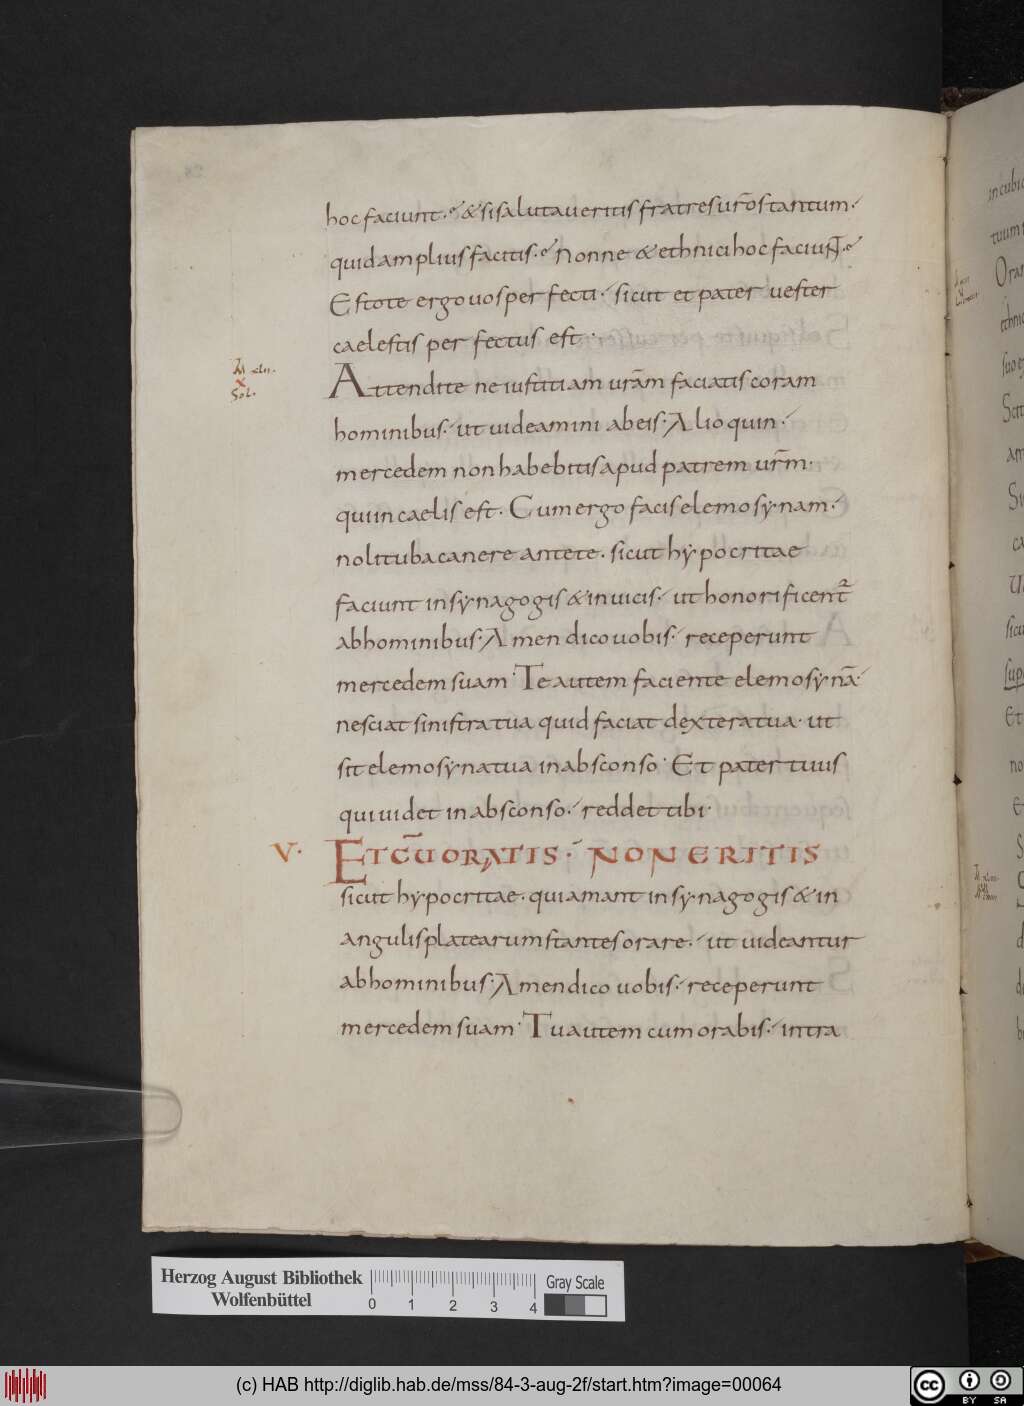 hoc faciunt. & si salutaueritis fratres ur̄os tantum.
quid amplius facitis. Nonne & ethnici hoc faciunt.
Estote ergo uos perfecti. sicut et pater uester
caelestis perfectus est.
M xlii.
X
Sol.
Attendite ne iustitiam ur̄am faciatis coram
hominibus. ut uideamini ab eis. Alioquin.
mercedem non habebitis apud patrem ur̄m.
qui in caelis est. Cum ergo facis elemosynam.
noli tuba canere ante te. sicut hypocritae
faciunt in synagogis & in uicis. ut honorificent᷑
ab hominibus. Amen dico uobis. receperunt
mercedem suam. Te autem faciente elemosynā.
nesciat sinistra tua quid faciat dextera tua. ut
sit elemosyna tua in absconso. Et pater tuus
qui uidet in absconso. reddet tibi.
V. ET CŪ ORATIS. NON ERITIS
sicut hypocritae. qui amant in synagogis & in
angulis platearum stantes orare. ut uideantur
ab hominibus. Amen dico uobis. receperunt
mercedem suam. Tu autem cum orabis. intra
in cubic
tuum
Herzog August Bibliothek
Wolfenbüttel
0 1 2 3 4
Gray Scale
(c) HAB http://diglib.hab.de/mss/84-3-aug-2f/start.htm?image=00064
cc BY SA